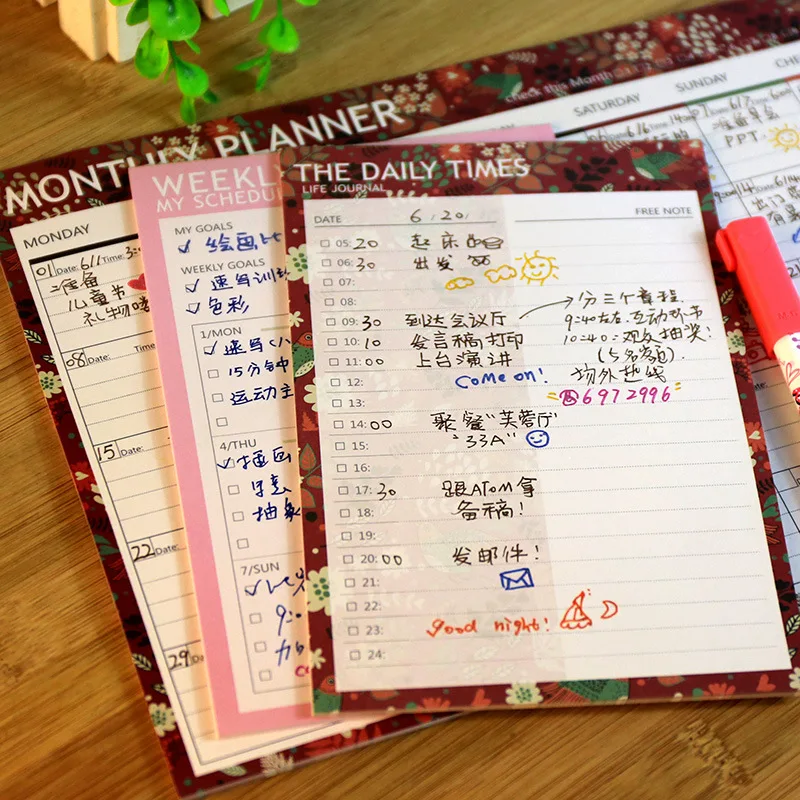 MONTHLY PLANNER
MONDAY
01 Date: 6/1 Time: 3:
准备
儿童节
礼物喽
08 Date: Time
15 Date:
22 Date:
29 Da
WEEKLY
MY SCHEDU
MY GOALS
绘画比
WEEKLY GOALS
速写训
色彩
1/MON
速写
15分钟
运动主
4/THU
插画
寻意
抽象
7/SUN
9:0
THE DAILY TIMES
LIFE JOURNAL
DATE 6/20/ FREE NOTE
05:20 起床
06:30 出发
07:
08:
09:30 到达会议厅 分三个章程.
9:40左右互动环节
10:10 发言稿打印 10:40:观众抽奖!
11:00 上台演讲 (5名客)
12: Come on! 场外热线
13: ☎6972996
14:00 聚餐"芙蓉厅"
15: "33A"
16:
17:30 跟ATOM拿
18: 备稿!
19:
20:00 发邮件!
21:
22:
23: good night!
24:
check the Month
SATURDAY
SUNDAY
CHE
PPT
出门